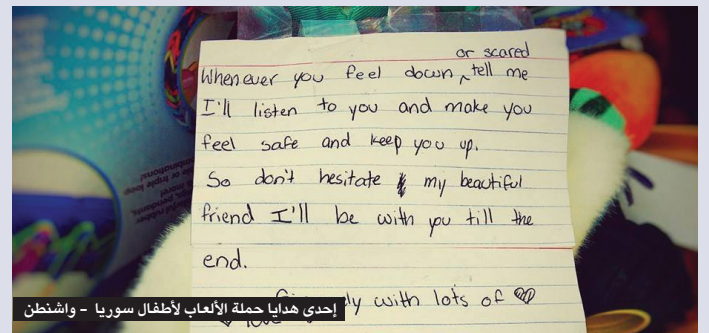 or scared
Whenever you feel down ^ tell me
I'll listen to you and make you
feel safe and keep you up.
So don't hesitate my beautiful
friend I'll be with you till the
end.
with lots of
إحدى هدايا حملة الألعاب لأطفال سوريا - واشنطن